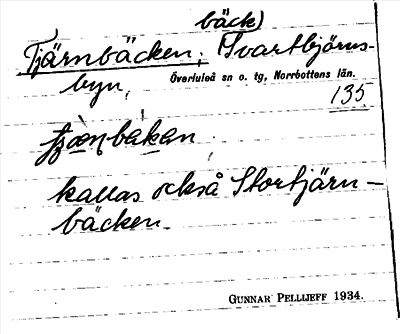 bäck)
Tjärnbäcken, Svartbjörns-
byn, Överluleå sn o. tg, Norrbottens län.
135
kallas också Stortjärn-
bäcken
GUNNAR PELLIJEFF 1934.